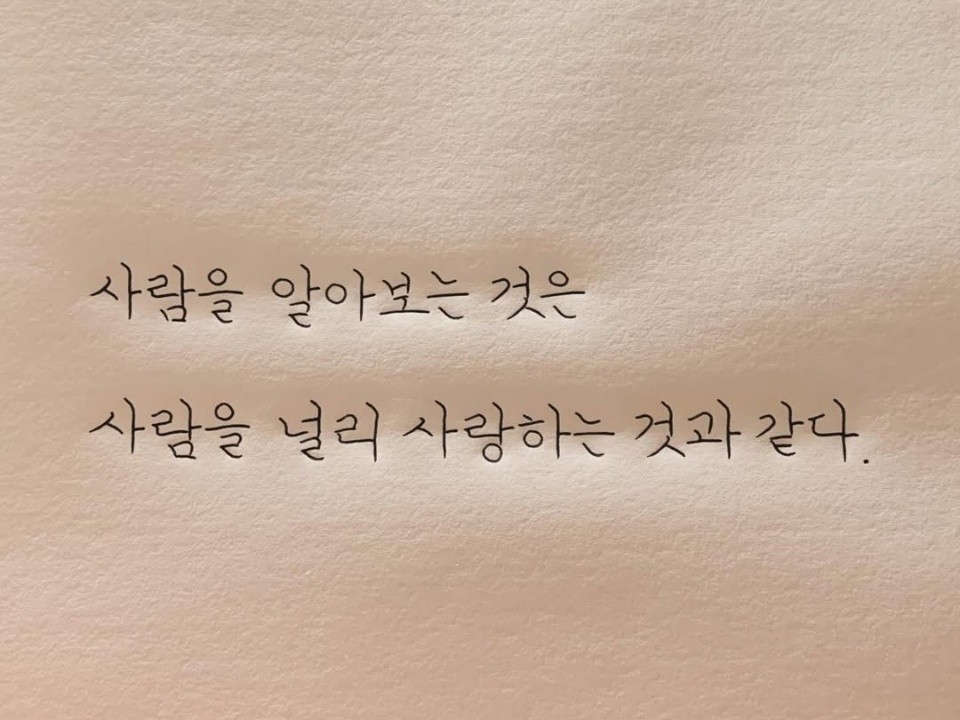 사람을 알아보는 것은
사람을 널리 사랑하는 것과 같다.